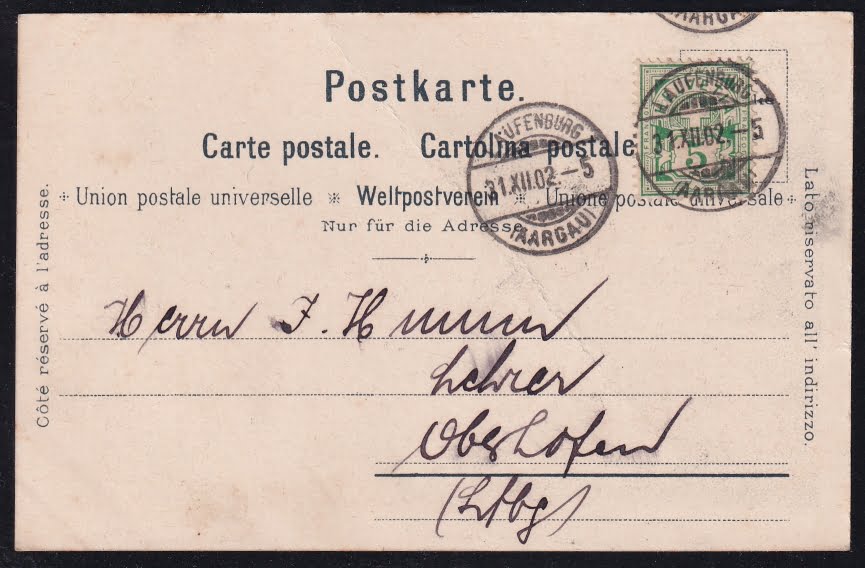 (AARGAU)
Postkarte.
Carte postale. Cartolina postale.
Union postale universelle * Weltpostverein * Unione postale universale
Nur für die Adresse.
LAUFENBURG
31.XII.02.–5
(AARGAU)
LAUFENBURG
31.XII.02.–5
(AARGAU)
5
Côté réservé à l'adresse.
Lato riservato all' indirizzo.
Herrn J.
Lehrer
Oberhofen